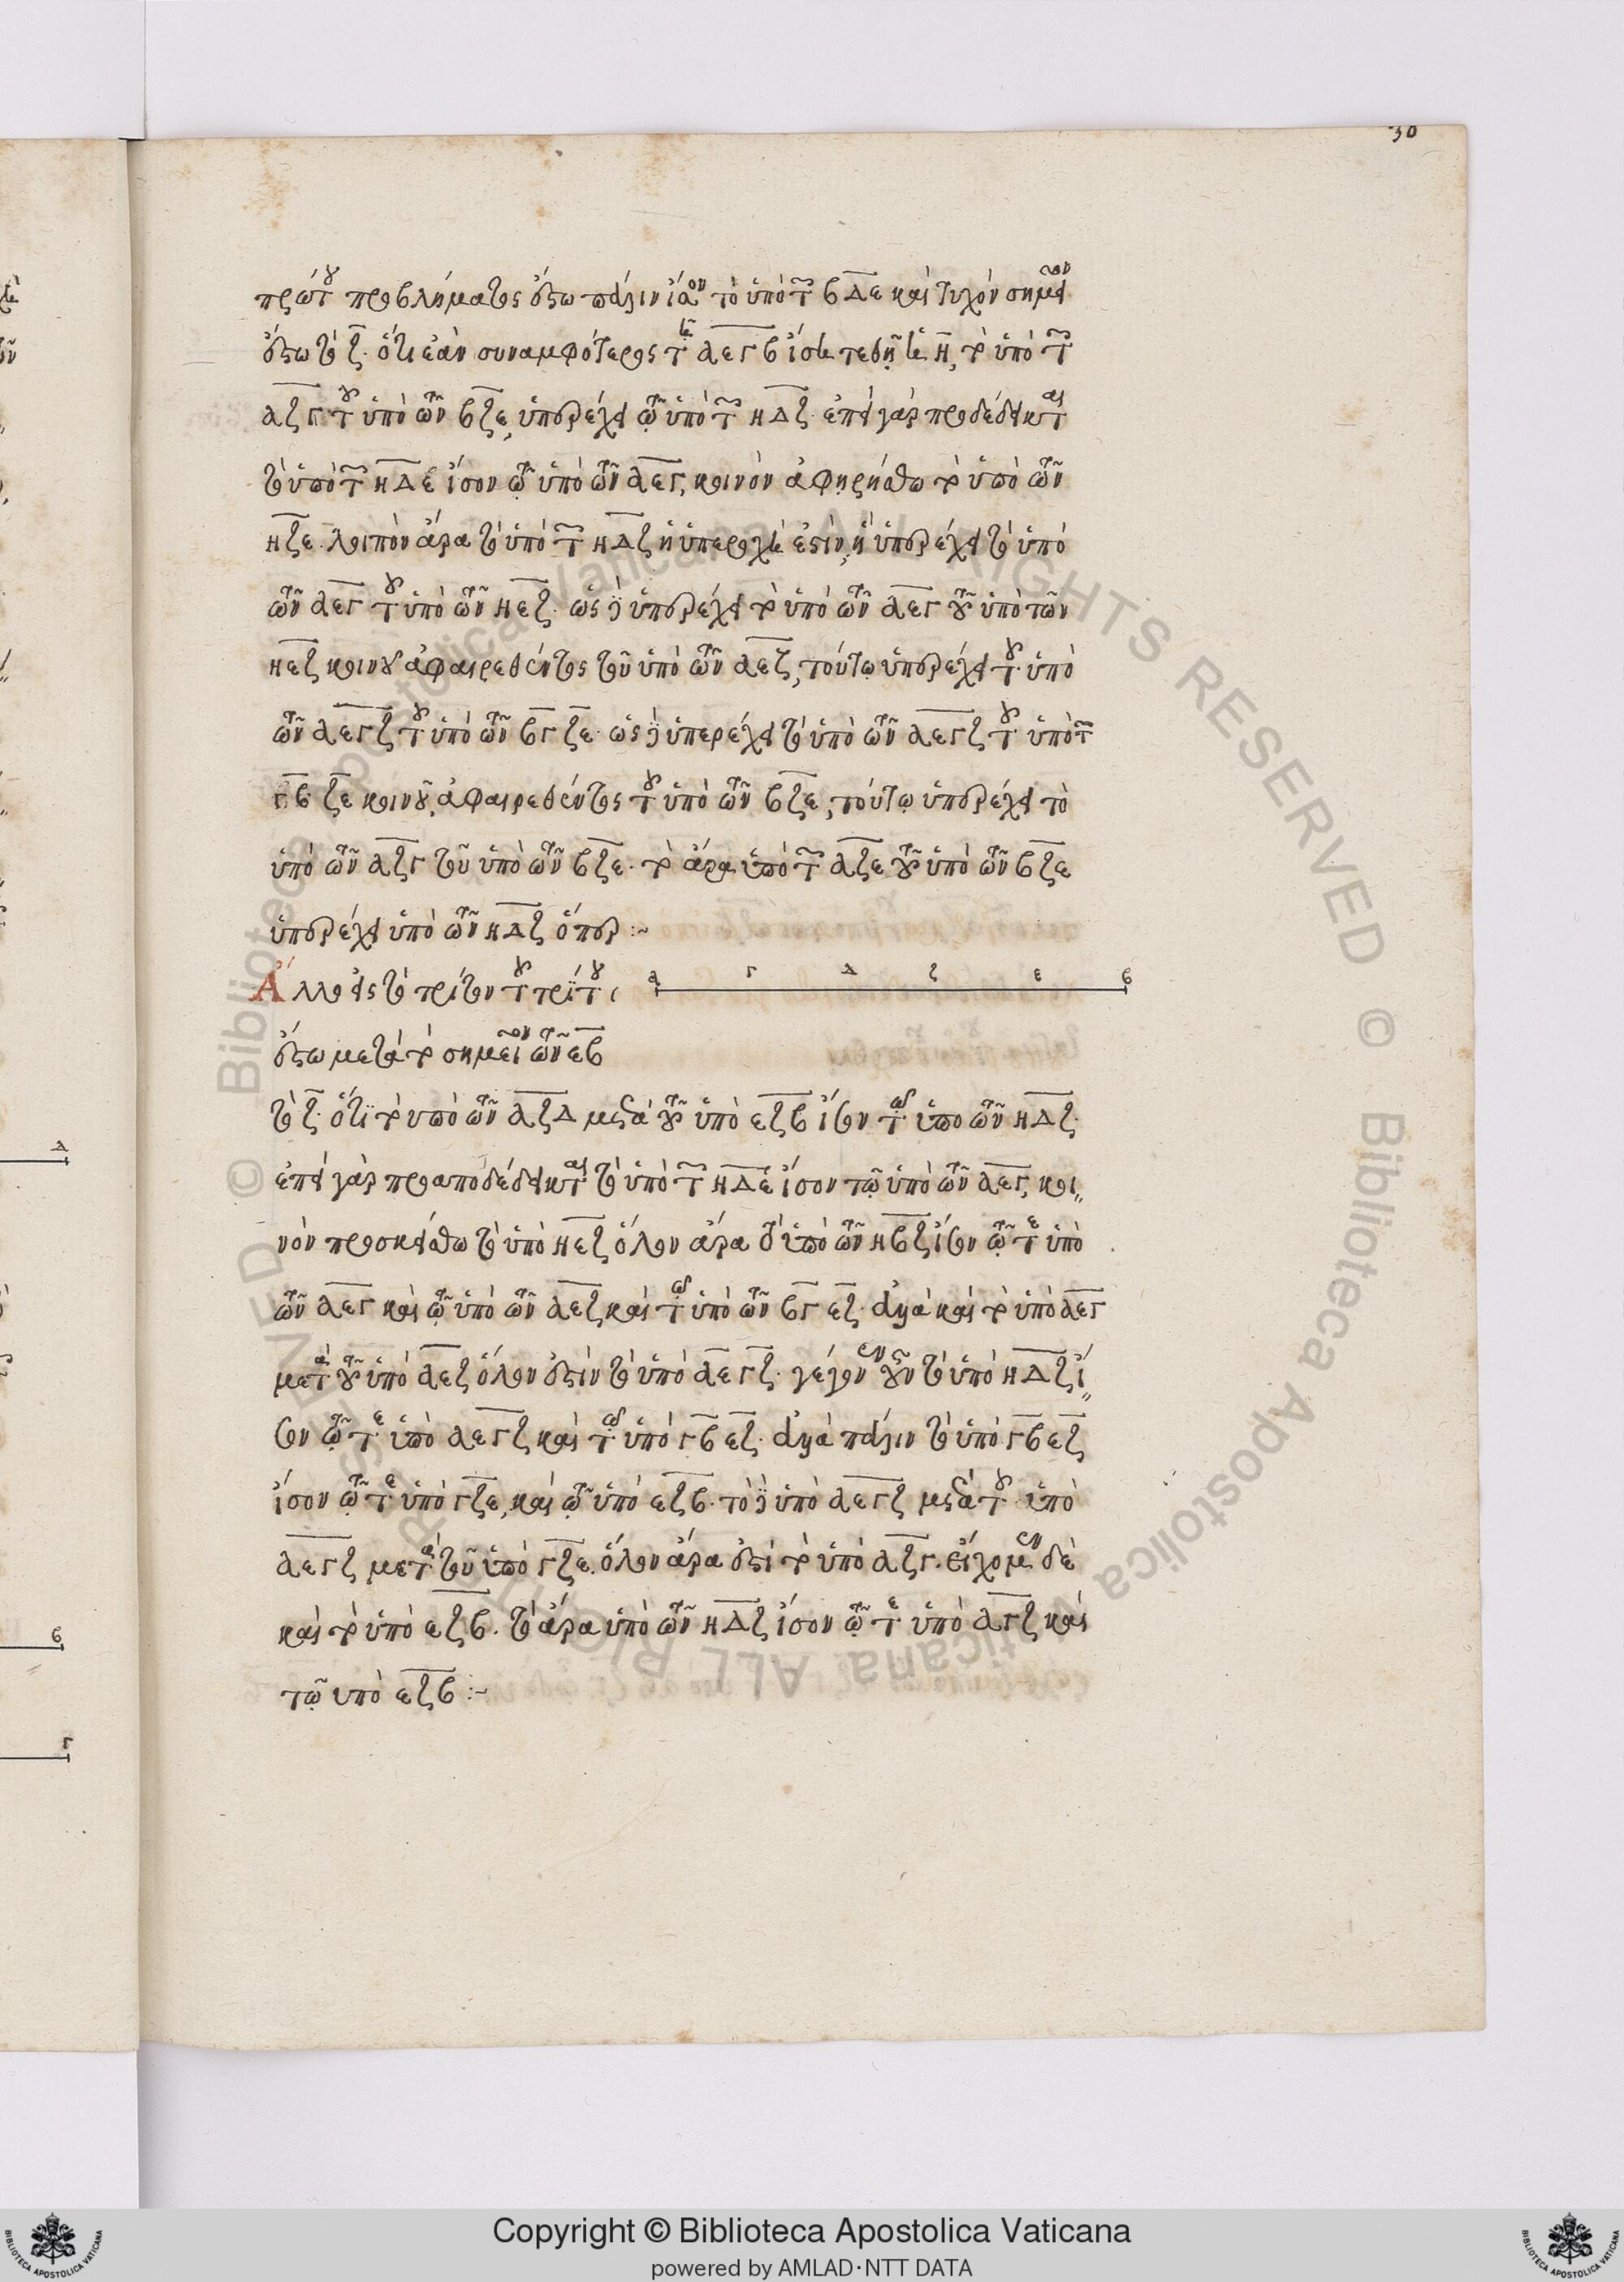 30
πρώτου προβλήματος ἔστω πάλιν ἴσον τὸ ὑπὸ τῶν ΒΔΕ καὶ τυχὸν σημεῖον
ἔστω τὸ Ζ. ὅτι ἐὰν συναμφότερος τῇ ΑΕ ΓΒ ἴση τεθῇ ἡ Η, τὸ ὑπὸ τῶν
ΑΖΓ τοῦ ὑπὸ τῶν ΒΖΕ, ὑπερέχει τῷ ὑπὸ τῶν ΗΔΖ. ἐπεὶ γὰρ προδέδεικται
τὸ ὑπὸ τῶν Η ΔΕ ἴσον τῷ ὑπὸ τῶν ΑΕΓ, κοινὸν ἀφῃρήσθω τὸ ὑπὸ τῶν
Η ΖΕ. λοιπὸν ἄρα τὸ ὑπὸ τῶν Η ΔΖ ἡ ὑπεροχή ἐστιν, ᾗ ὑπερέχει τὸ ὑπὸ
τῶν ΑΕΓ τοῦ ὑπὸ τῶν Η ΕΖ. ὡς δὲ ὑπερέχει τὸ ὑπὸ τῶν ΑΕΓ τοῦ ὑπὸ τῶν
Η ΕΖ κοινοῦ ἀφαιρεθέντος τοῦ ὑπὸ τῶν ΑΕΖ, τούτῳ ὑπερέχει τοῦ ὑπὸ
τῶν ΑΕ ΓΖ τοῦ ὑπὸ τῶν ΒΓ ΖΕ. ὡς δὲ ὑπερέχει τὸ ὑπὸ τῶν ΑΕ ΓΖ τοῦ ὑπὸ τῶν
ΓΒ ΖΕ κοινοῦ, ἀφαιρεθέντος τοῦ ὑπὸ τῶν ΒΖΕ, τούτῳ ὑπερέχει τὸ
ὑπὸ τῶν ΑΖΓ τοῦ ὑπὸ τῶν ΒΖΕ. τὸ ἄρα ὑπὸ τῶν ΑΖΕ τοῦ ὑπὸ τῶν ΒΖΕ
ὑπερέχει ὑπὸ τῶν Η ΔΖ ὅπερ :~
Ἄλλο εἰς τὸ τρίτον τοῦ τρίτου
Α Γ Δ Ζ Ε Β
ἔστω μετὰ τὸ σημεῖον τῶν ΕΒ
τὸ Ζ. ὅτι τὸ ὑπὸ τῶν ΑΖΔ μετὰ τοῦ ὑπὸ ΕΖΒ ἴσον τῷ ὑπὸ τῶν Η ΔΖ.
ἐπεὶ γὰρ προαποδέδεικται τὸ ὑπὸ τῶν Η ΔΕ ἴσον τῷ ὑπὸ τῶν ΑΕΓ, κοι
νὸν προσκείσθω τὸ ὑπὸ Η ΕΖ ὅλον ἄρα τὸ ὑπὸ τῶν Η ΒΖ ἴσον τῷ τε ὑπὸ
τῶν ΑΕΓ καὶ τῷ ὑπὸ τῶν ΑΕΖ καὶ τῷ ὑπὸ τῶν ΒΓ ΕΖ. ἀλλὰ καὶ τὸ ὑπὸ ΑΕΓ
μετὰ τοῦ ὑπὸ ΑΕΖ ὅλον ἐστὶν τὸ ὑπὸ ΑΕ ΓΖ. γέγονεν οὖν τὸ ὑπὸ Η ΔΖ ἴ
σον τῷ τε ὑπὸ ΑΕ ΓΖ καὶ τῷ ὑπὸ ΓΒ ΕΖ. ἀλλὰ πάλιν τὸ ὑπὸ ΓΒ ΕΖ
ἴσον τῷ τε ὑπὸ ΓΖΕ, καὶ τῷ ὑπὸ ΕΖΒ. τὸ δὲ ὑπὸ ΑΕ ΓΖ μετὰ τοῦ ὑπὸ
ΑΕ ΓΖ μετὰ τοῦ ὑπὸ ΓΖΕ. ὅλον ἄρα ἐστὶ τὸ ὑπὸ ΑΖΓ. εἴχομεν δὲ
καὶ τὸ ὑπὸ ΕΖΒ. τὸ ἄρα ὑπὸ τῶν Η ΔΖ ἴσον τῷ τε ὑπὸ ΑΓΖ καὶ
τῷ ὑπὸ ΕΖΒ :~
Δ
Β
Γ
Copyright © Biblioteca Apostolica Vaticana
powered by AMLAD·NTT DATA